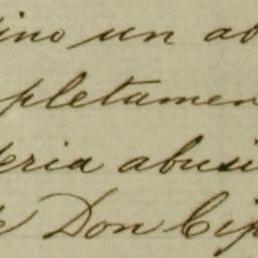 ino un ab
pletamen
eria abusi
e Don Cip